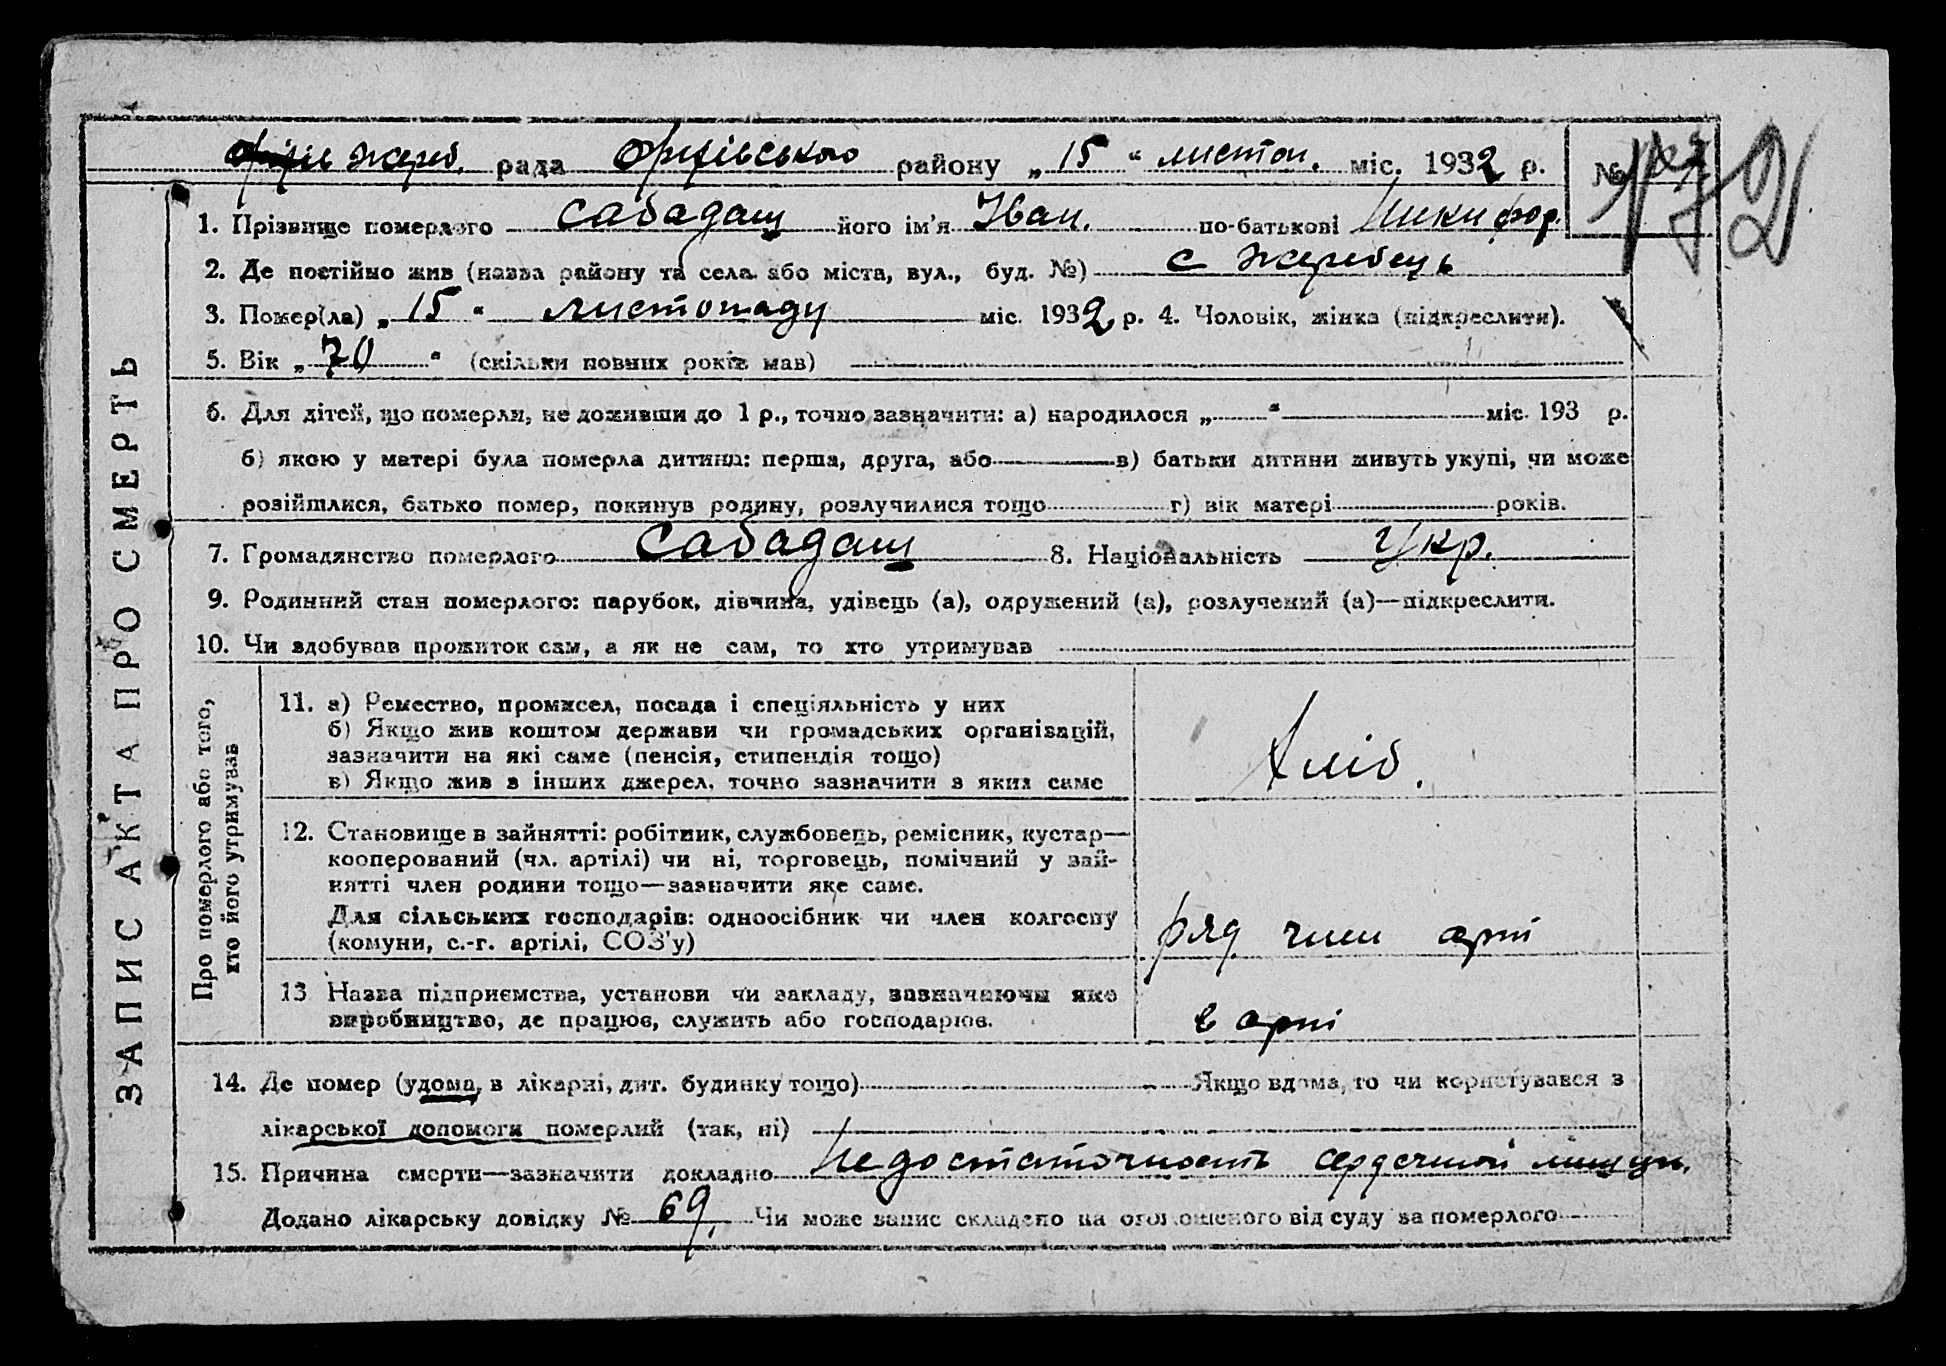 Жереб. рада Оріхівського району „15“ листоп. міс. 1932 р.
№ 172
1. Прізвище померлого Сабадаш його ім’я Іван. по-батькові Никифор.
2. Де постійно жив (назва району та села або міста, вул., буд. №) с Жеребець
3. Помер(ла) „15“ листопаду міс. 1932 р. 4. Чоловік, жінка (підкреслити).
5. Вік „70“ (скільки повних років мав)
6. Для дітей, що померли, не доживши до 1 р., точно зазначити: а) народилося „ “ міс. 193 р.
б) якою у матері була померла дитина: перша, друга, або в) батьки дитини живуть укупі, чи може
розійшлися, батько помер, покинув родину, розлучилися тощо г) вік матері років.
7. Громадянство померлого Сабадаш 8. Національність Укр.
9. Родинний стан померлого: парубок, дівчина, удівець (а), одружений (а), розлучений (а)—підкреслити.
10. Чи здобував прожиток сам, а як не сам, то хто утримував
ЗАПИС АКТА ПРО СМЕРТЬ
Про померлого або того,
хто його утримував
11. а) Ремество, промисел, посада і спеціяльність у них
б) Якщо жив коштом держави чи громадських організацій,
зазначити на які саме (пенсія, стипендія тощо)
в) Якщо жив з інших джерел, точно зазначити з яких саме
Хліб.
12. Становище в зайнятті: робітник, службовець, ремісник, кустар—
кооперований (чл. артілі) чи ні, торговець, помічний у зай-
нятті член родини тощо—зазначити яке саме.
Для сільських господарів: одноосібник чи член колгоспу
(комуни, с.-г. артілі, СОЗ’у)
ряд. член арті
13 Назва підприємства, установи чи закладу, зазначаючи яке
виробництво, де працює, служить або господарює.
в арті
14. Де помер (удома, в лікарні, дит. будинку тощо) Якщо вдома, то чи користувався з
лікарської допомоги померлий (так, ні)
15. Причина смерти—зазначити докладно Недостаточность сердечной мишци.
Додано лікарську довідку № 69. Чи може запис складено на оголошеного від суду за померлого